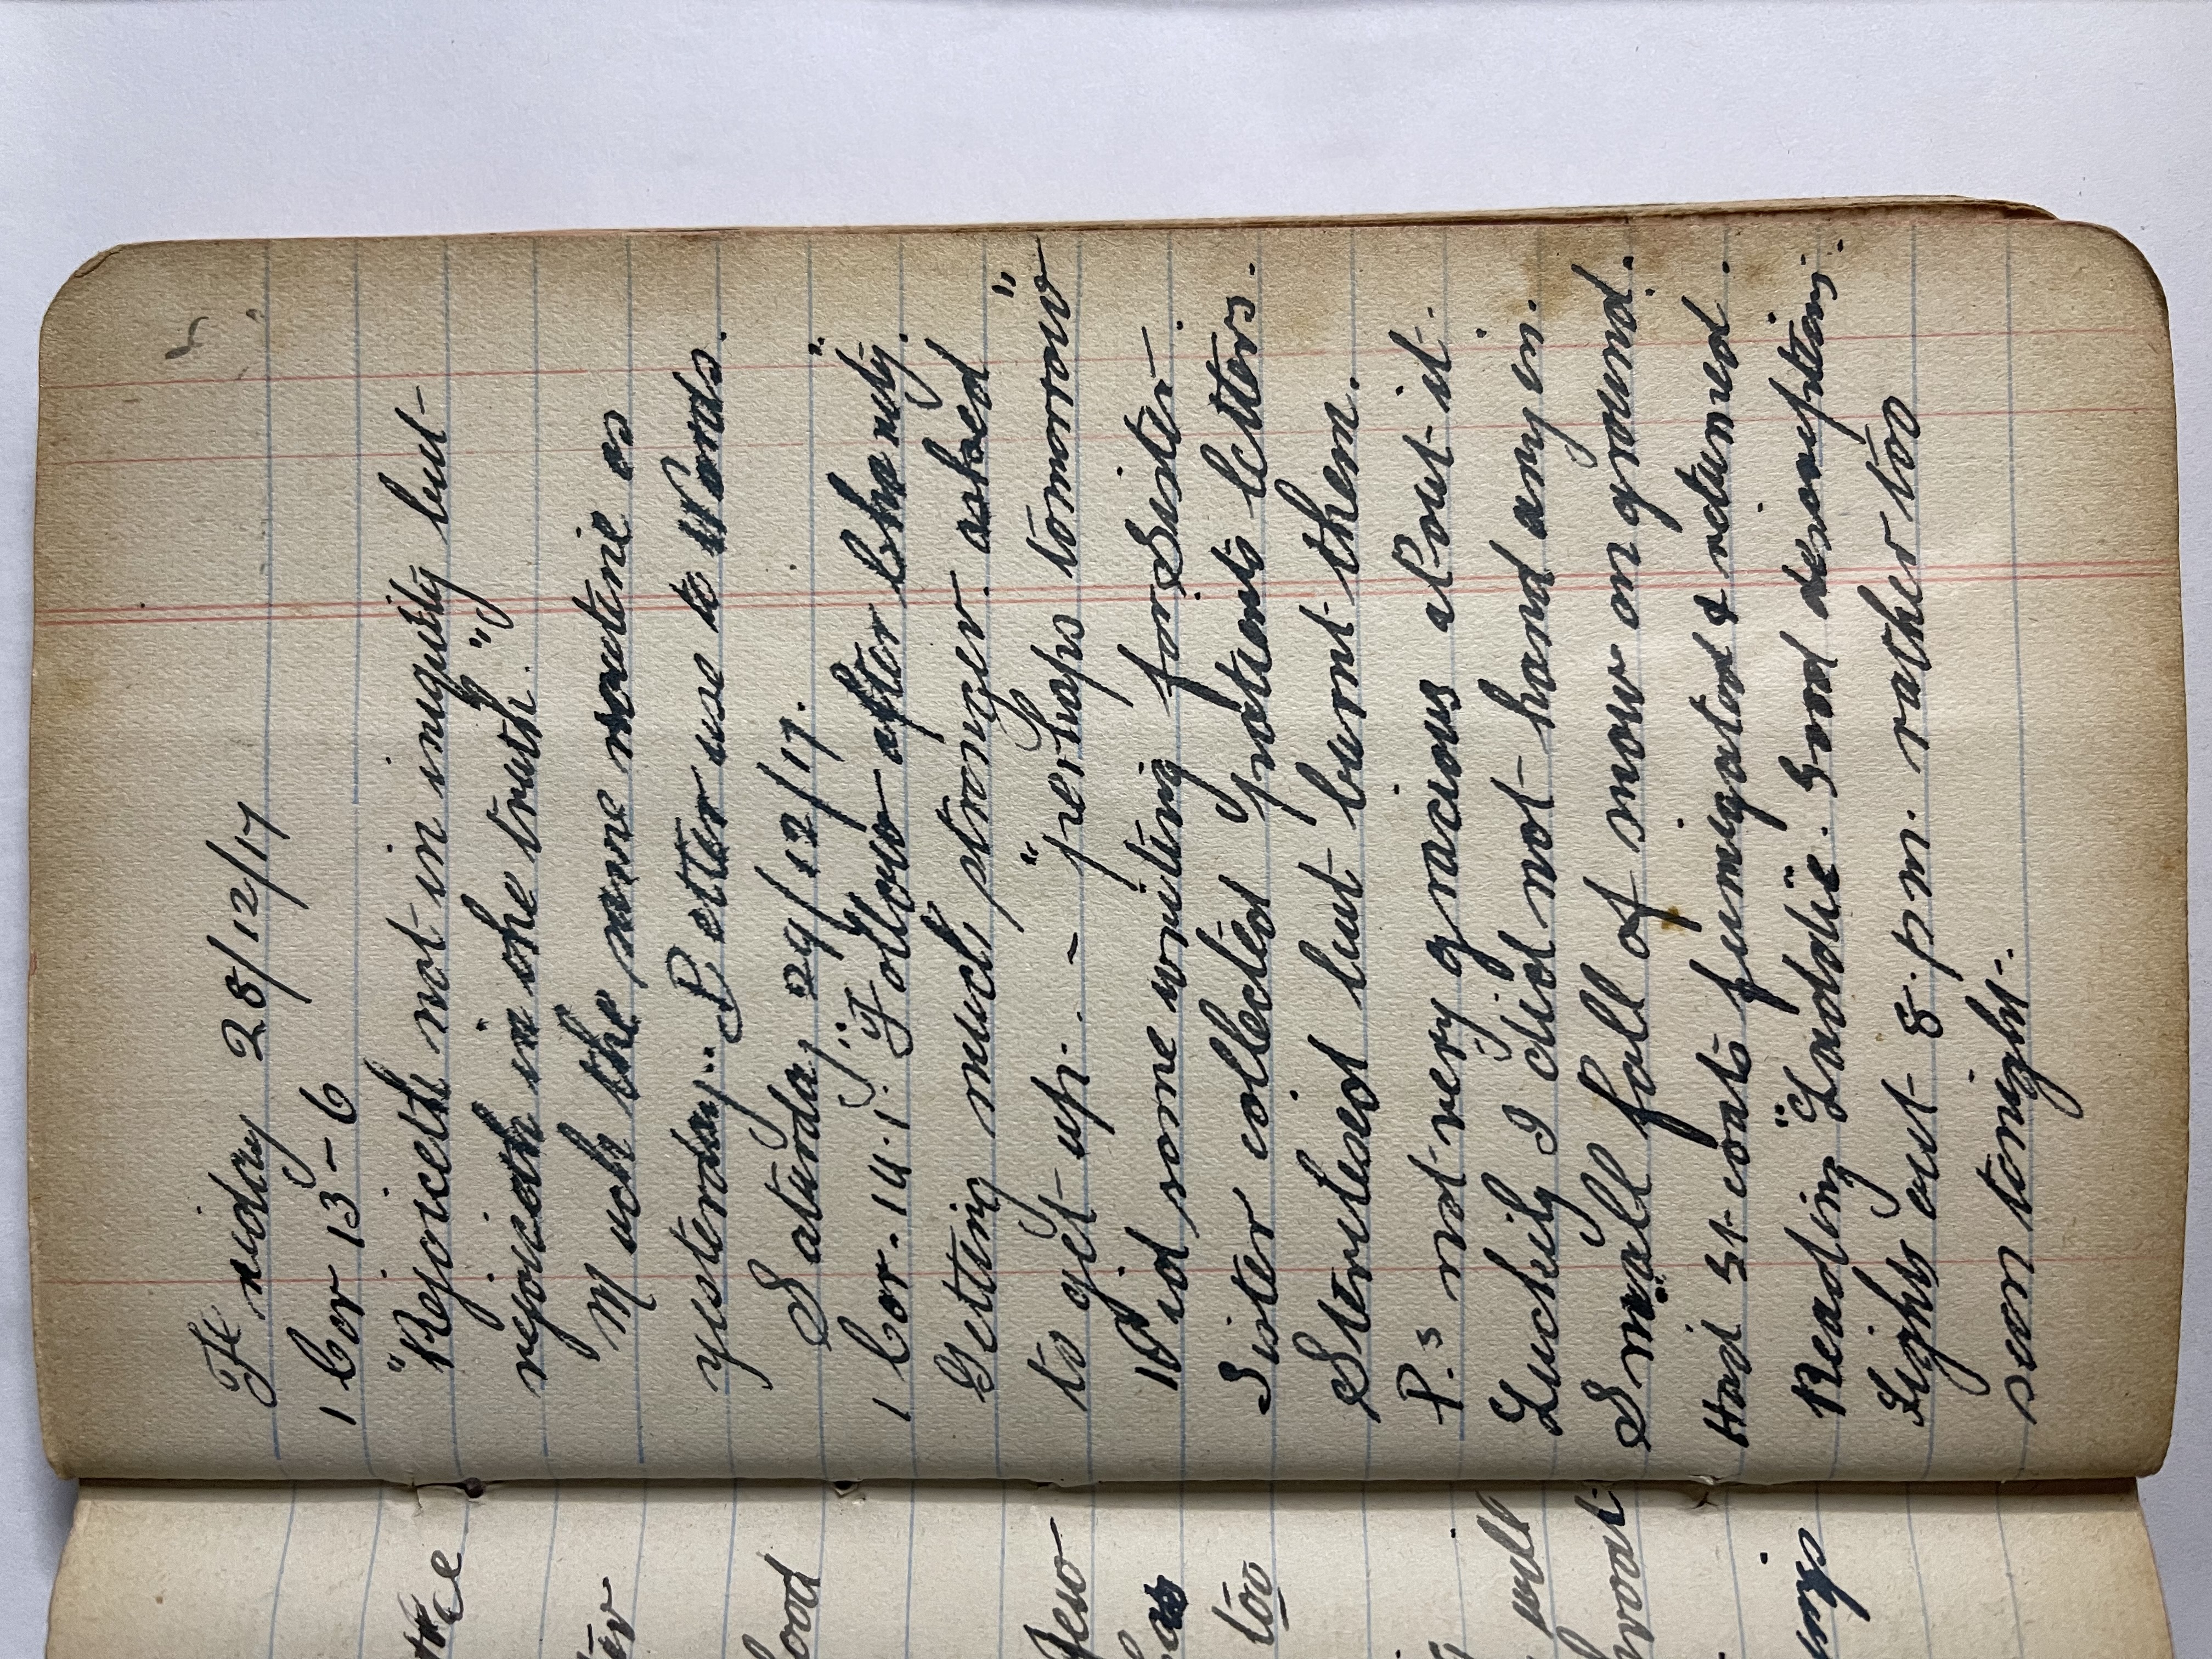 Friday 28/12/17
1 Cor 13-6
"Rejoiceth not in iniquity but
rejoiceth in the truth."
Much the same routine as
yesterday. Better use to Wards.
Saturday 29/12/17.
1 Cor. 14.1. "Follow after Charity."
Getting much stronger. asked
to get up. - "perhaps tomorrow"
Did some writing for Sister.
Sister collected patients letters.
Sterilised but burnt them.
P.s not very gracious about it.
Luckily I did not hand any in.
Small fall of snow on ground.
Had gt-coats fumigated & returned.
Reading "Laddie". Good description.
Lights out 8.pm. rather too
soon tonight.
the
food
few
has
too
will